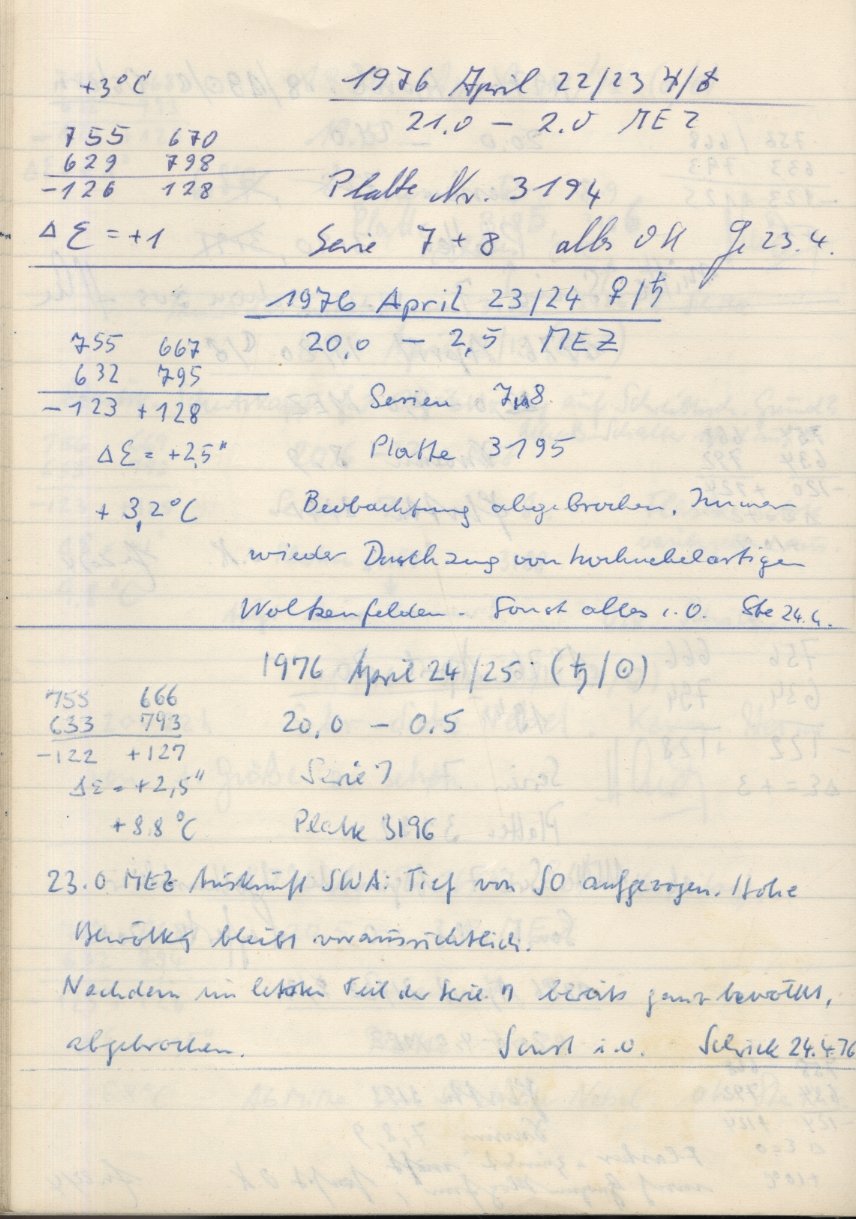 +3°C 1976 April 22/23 ♃/♀
21.0 – 2.0 MEZ
755 670
629 798
-126 128
Platte Nr. 3194
Δ Σ = +1 Serie 7 + 8 alles OK 23.4.
1976 April 23/24 ♀/♄
755 667 20,0 – 2,5 MEZ
632 795
-123 +128 Serien 7 8
ΔΣ = +2,5" Platte 3195
+ 3,2°C Beobachtung abgebrochen. Immer
wieder Durchzug von hochnebelartigen
Wolkenfeldern. Sonst alles i.O. Ste 24.4.
1976 April 24/25 (♄/☉)
755 666
633 793 20,0 – 0.5
-122 +127
ΔΣ = +2,5" Serie 7
+8.8°C Platte 3196
23.0 MEZ Auskunft SWA: Tief von SO aufgezogen. Hohe
Bewölkg bleibt voraussichtlich.
Nachdem im letzten Teil der Serie 7 bereits ganz bewölkt,
abgebrochen. Sonst i.O. Schrick 24.4.76